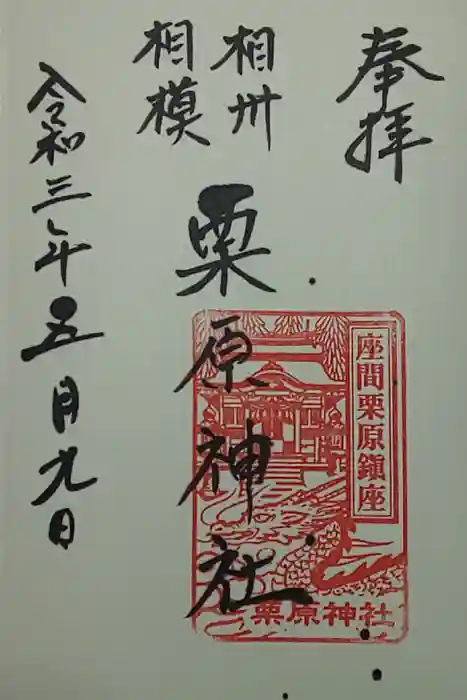 奉拝
相州
相模
栗原神社
座間栗原鎮座
栗原神社
令和三年五月九日